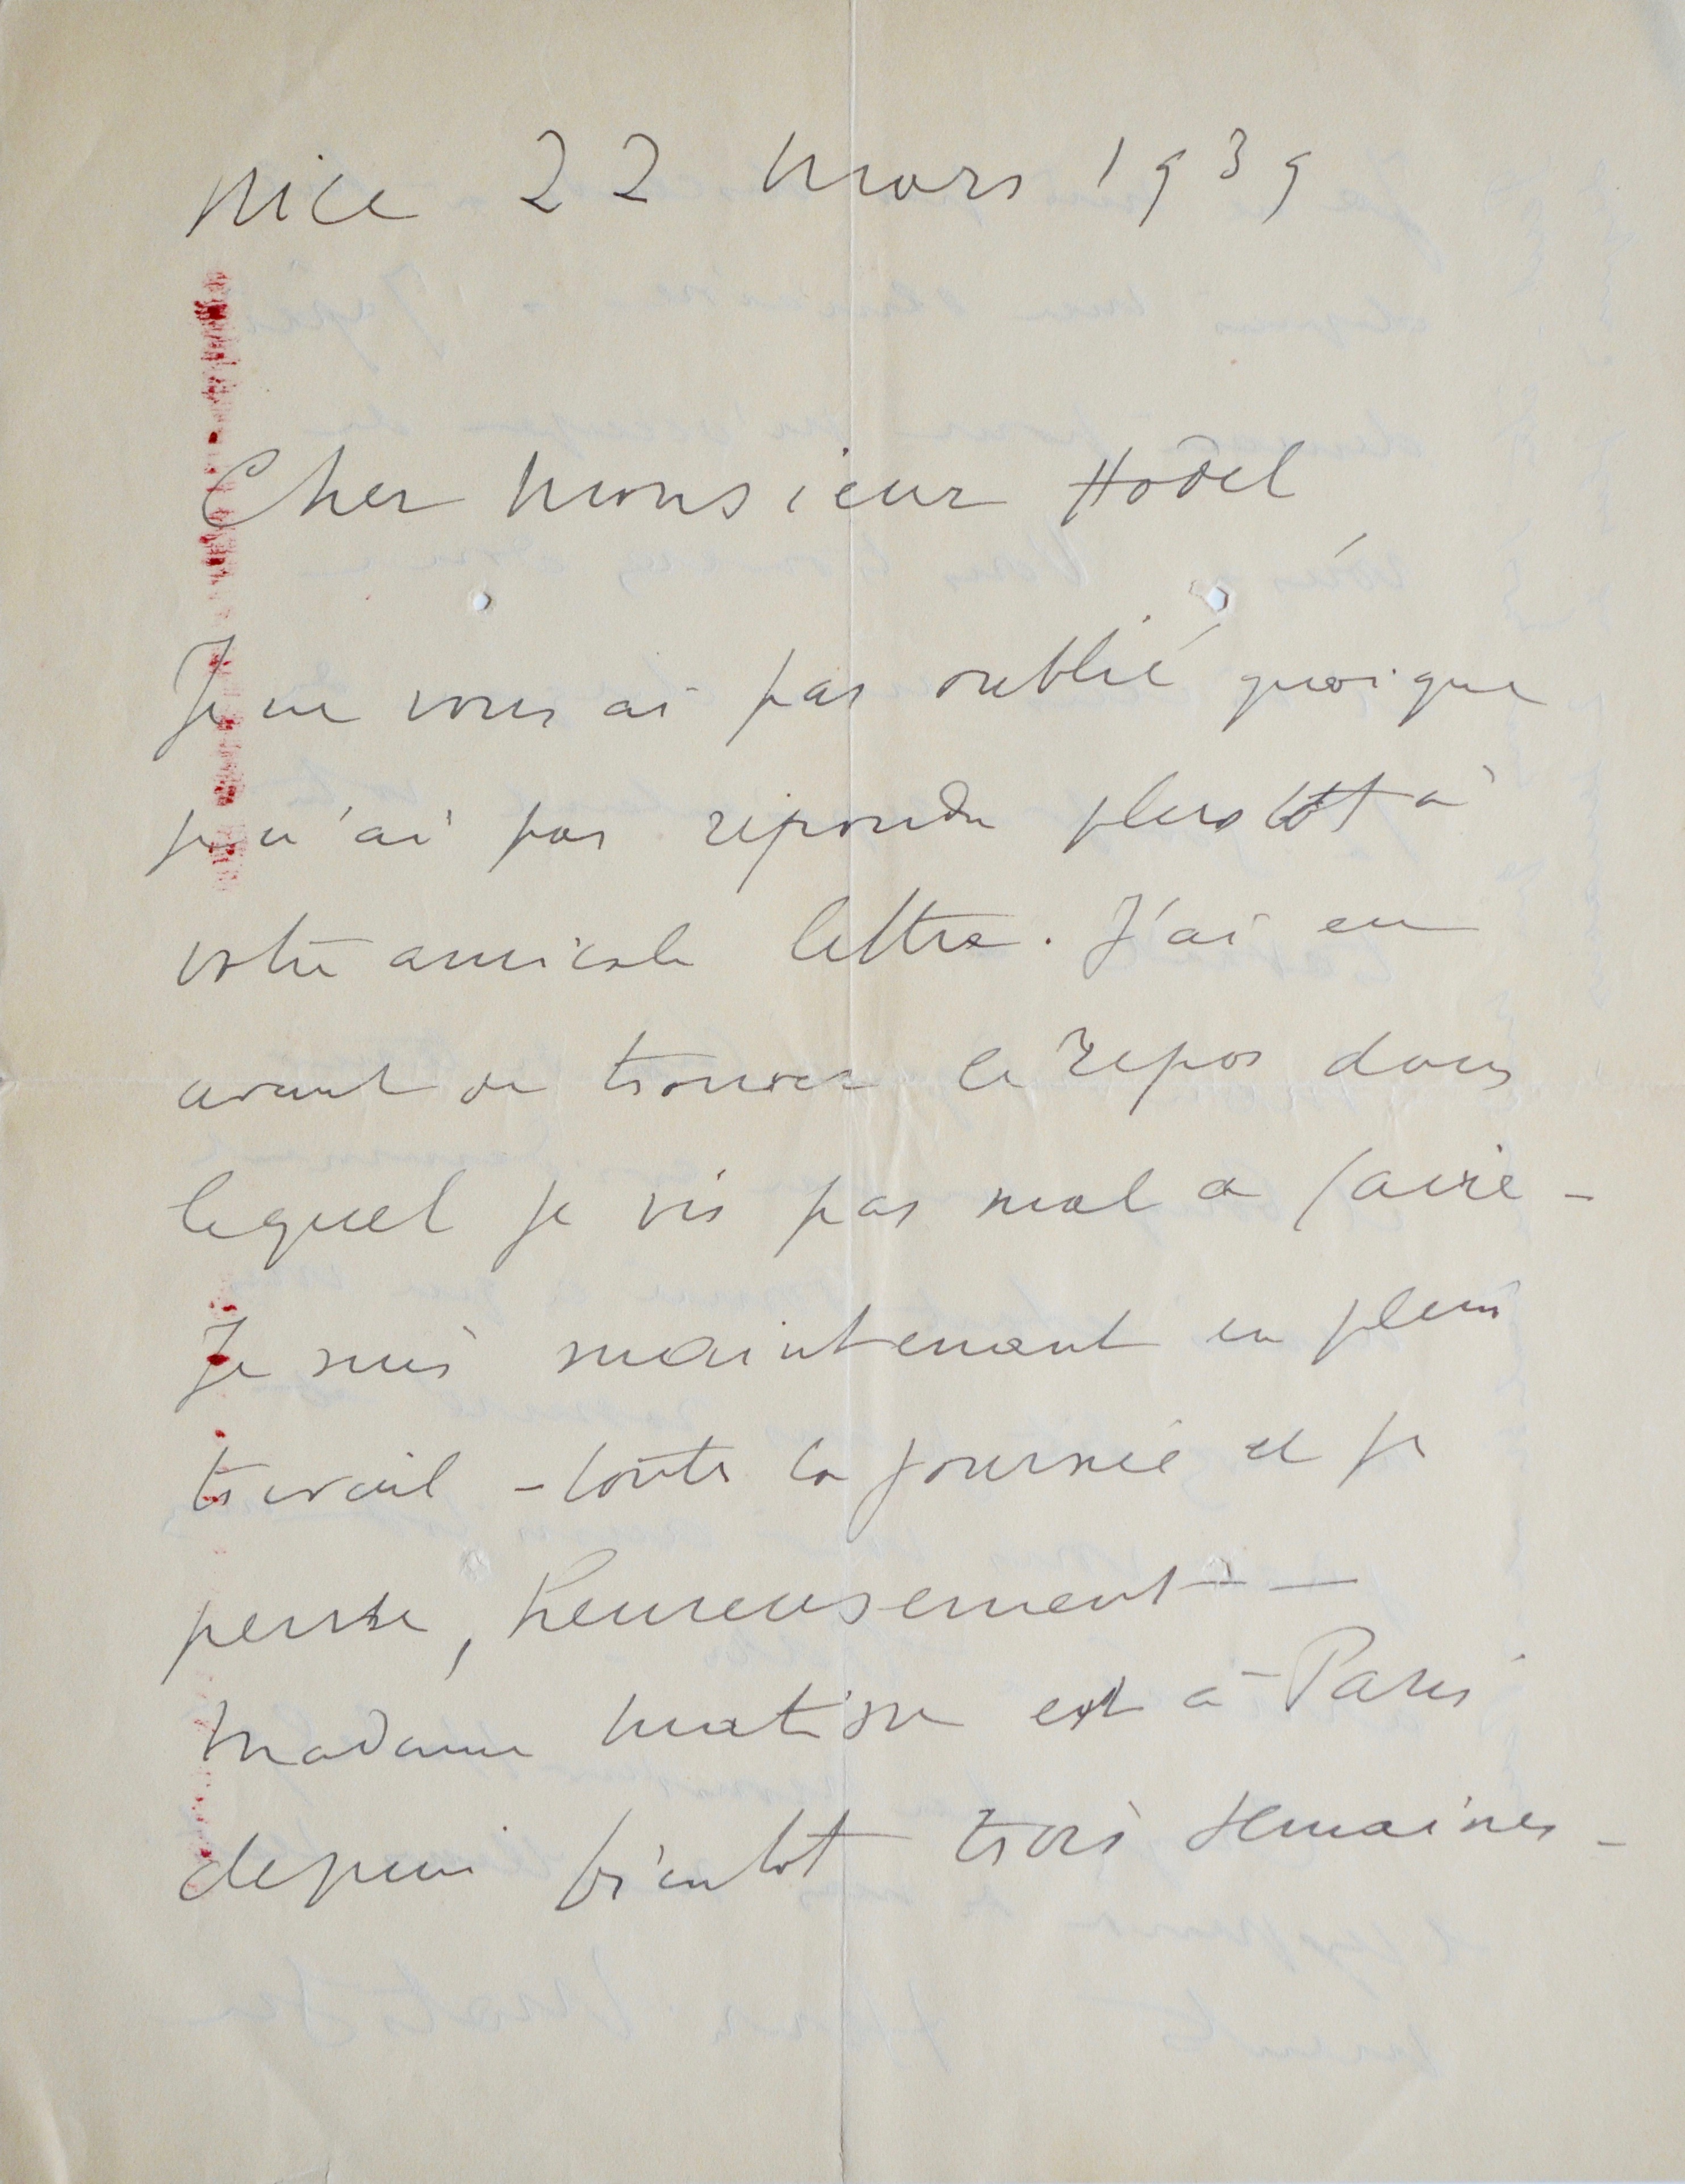 Nice 22 Mars 1939
Cher Monsieur Hodel
Je ne vous ai pas oublié quoique
je n'ai pas repondu plus tôt à
votre amicale lettre. J'ai eu
avant de trouver le repos dans
lequel je vis pas mal a faire -
Je suis maintenant en plein
travail - toute la journée et je
pense, heureusement -
Madame Matisse est à Paris
depuis bientôt trois semaines -